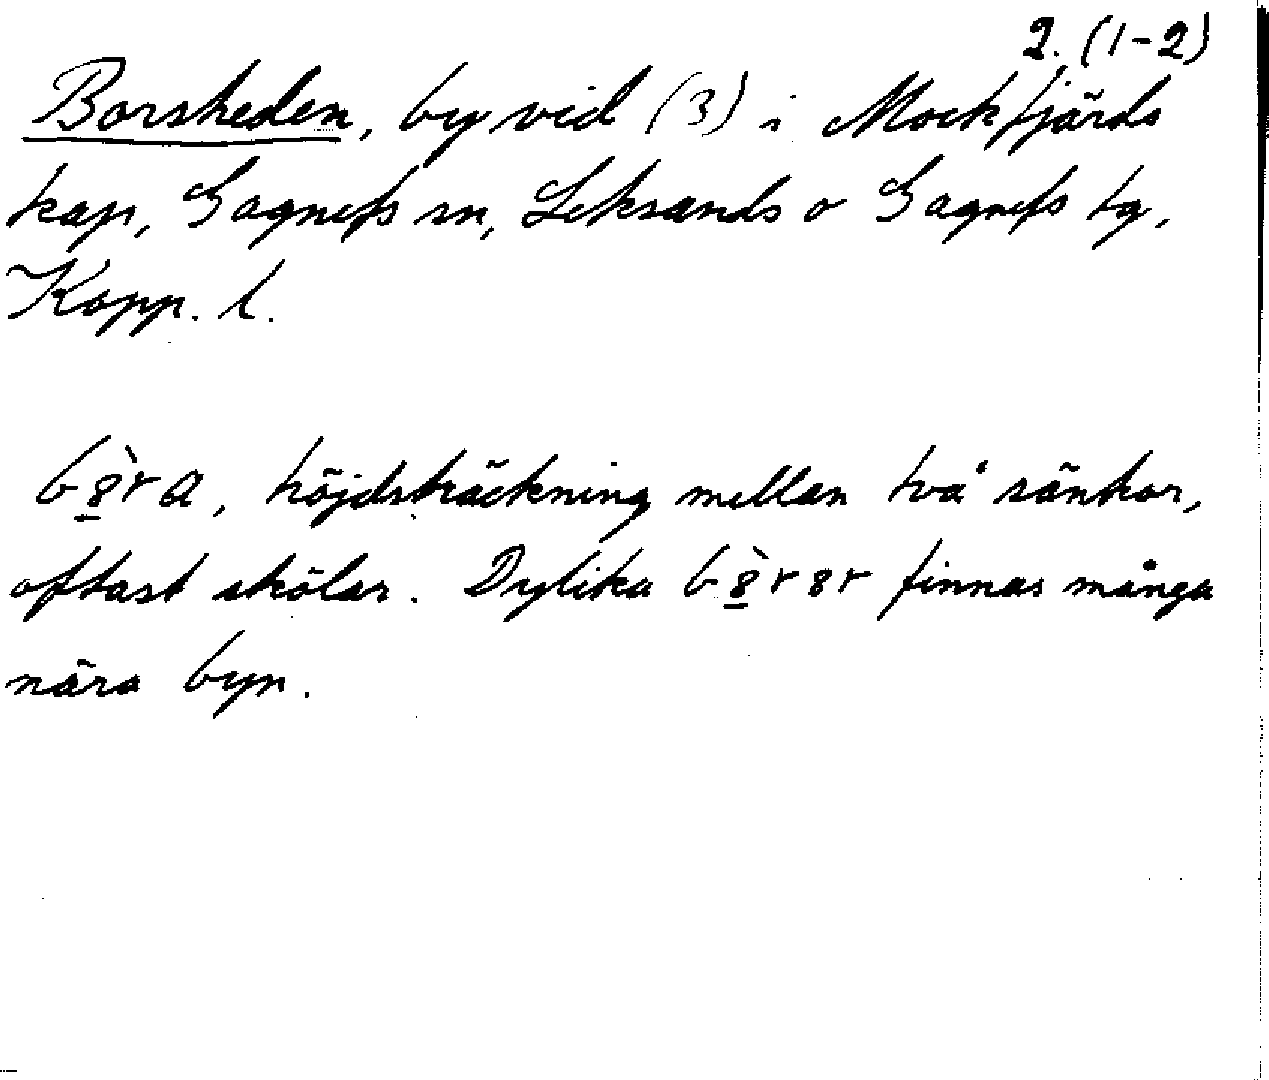 2. (1-2)
Borsheden, by vid (3) i Mockfjärds
kap, Gagnefs sn, Leksands o Gagnefs tg,
Kopp. l.
höjdsträckning mellan två sänkor,
oftast skölar. Dylika finnas många
nära byn.